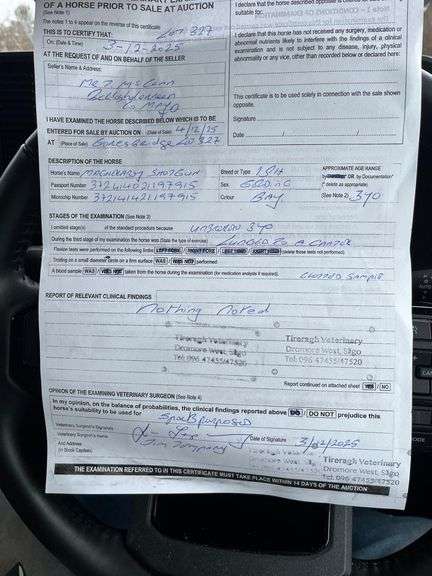 OF A HORSE PRIOR TO SALE AT AUCTION
(See Note 1)
LOT 327
The notes 1 to 4 appear on the reverse of this certificate
THIS IS TO CERTIFY THAT:
On: (Date & Time) 3-12-2025
AT THE REQUEST OF AND ON BEHALF OF THE SELLER
Seller's Name & Address:
Co MAYO
I HAVE EXAMINED THE HORSE DESCRIBED BELOW WHICH IS TO BE
ENTERED FOR SALE BY AUCTION ON (Date of Sale) 4/12/25
AT (Place of Sale) Goresbridge LOT 327
suitable for:
I declare that the horse has received any surgery, medication or
abnormal nutrients likely to interfere with the findings of a clinical
examination and is not subject to any disease, injury, physical
abnormality or any vice, other than recorded below or declared here:
This certificate is to be used solely in connection with the sale shown
opposite.
Signature
Date / /
DESCRIPTION OF THE HORSE
Horse's Name MAGHERABOY SHOTGUN Breed or Type ISH
APPROXIMATE AGE RANGE
OR by Documentation*
(* delete as appropriate)
Passport Number 372414021197915 Sex GELDING
Microchip Number 372141421197915 Colour BAY (See Note 2) 3YO
STAGES OF THE EXAMINATION (See Note 3)
I omitted stage(s) of the standard procedure because unbroken 3yo
During the third stage of my examination the horse was (State the type of exercise) LUNGED TO A CANTER
Flexion tests were performed on the following limbs LEFT FORE / RIGHT FORE / LEFT HIND / RIGHT HIND (delete those tests not performed)
Trotting on a small diameter circle on a firm surface WAS / WAS NOT performed
A blood sample WAS / WAS NOT taken from the horse during the examination (for medication analysis if required).
REPORT OF RELEVANT CLINICAL FINDINGS
Nothing Noted
Tireragh Veterinary
Dromore West, Sligo
Tel: 096 47455/47520
Tireragh Veterinary
Dromore West, Sligo
Tel: 096 47455/47520
Report continued on attached sheet YES / NO
OPINION OF THE EXAMINING VETERINARY SURGEON (See Note 4)
In my opinion, on the balance of probabilities, the clinical findings reported above DO / DO NOT prejudice this
horse's suitability to be used for
Veterinary Surgeon's Signature
Date of Signature 3/12/2025
Veterinary Surgeon's Name
And Address
(in Block Capitals)
Tireragh Veterinary
Dromore West, Sligo
Tel: 096 47455/47520
THE EXAMINATION REFERRED TO IN THIS CERTIFICATE MUST TAKE PLACE WITHIN 14 DAYS OF THE AUCTION